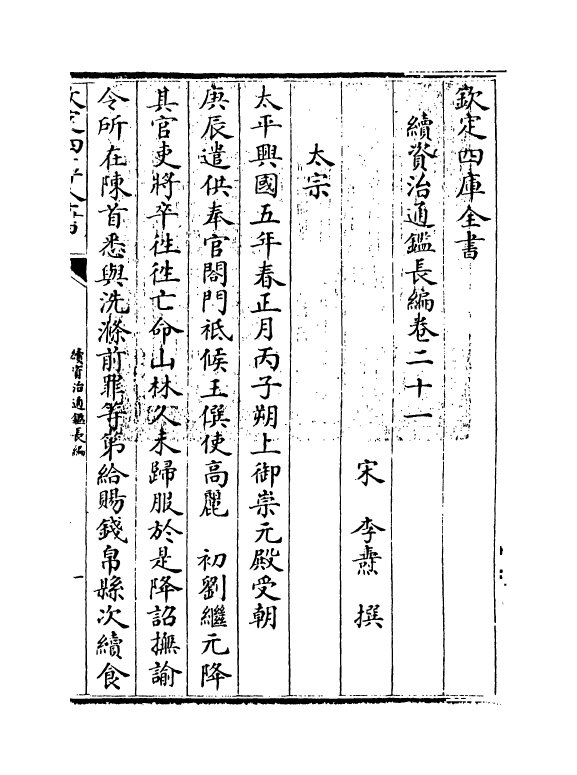 欽定四庫全書
續資治通鑑長編卷二十一
宋 李燾 撰
太宗
太平興國五年春正月丙子朔上御崇元殿受朝
庚辰遣供奉官閤門祗候王僎使高麗 初劉繼元降
其官吏將卒徃徃亡命山林久未歸服於是降詔撫諭
令所在陳首悉與洗滌前罪等第給賜錢帛縣次續食
欽定四庫全書
續資治通鑑長編
一